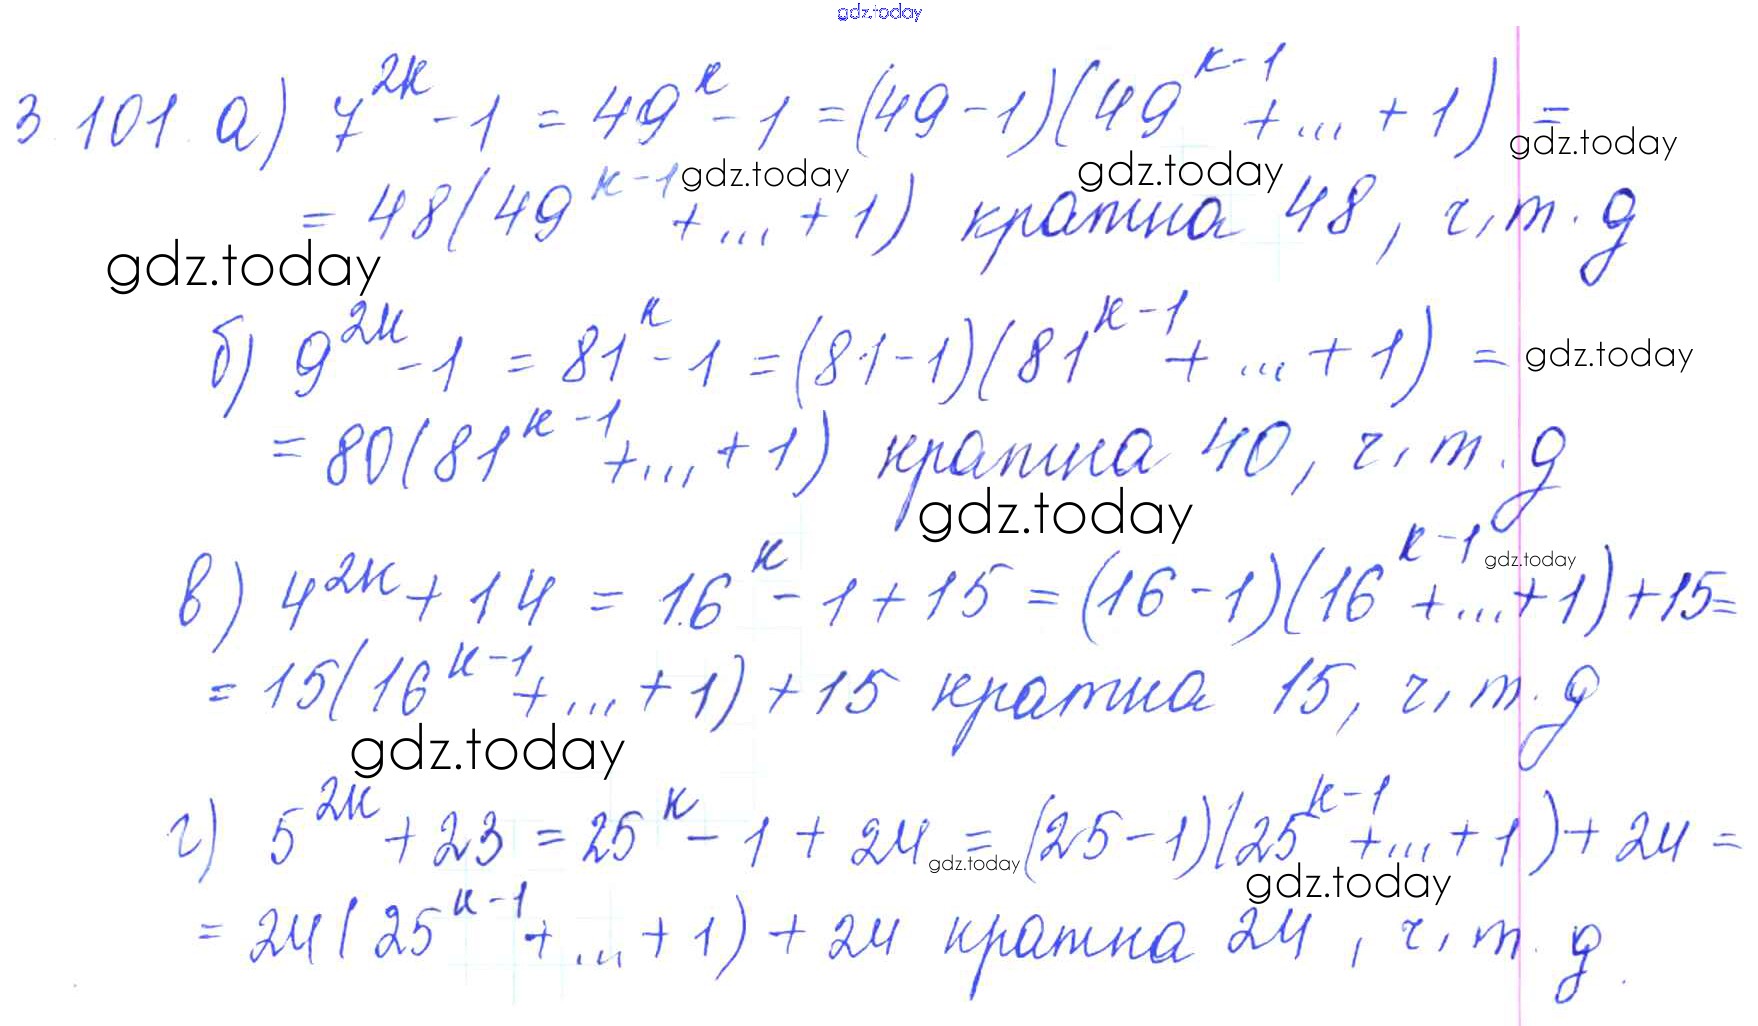 gdz.today
3.101. а) 7^{2k} - 1 = 49^k - 1 = (49 - 1)(49^{k-1} + ... + 1) =
gdz.today
= 48(49^{k-1} + ... + 1) кратна 48, ч.т.д
gdz.today gdz.today
gdz.today
б) 9^{2k} - 1 = 81^k - 1 = (81 - 1)(81^{k-1} + ... + 1) =
gdz.today
= 80(81^{k-1} + ... + 1) кратна 40, ч.т.д
gdz.today
в) 4^{2k} + 14 = 16^k - 1 + 15 = (16 - 1)(16^{k-1} + ... + 1) + 15 =
gdz.today
= 15(16^{k-1} + ... + 1) + 15 кратна 15, ч.т.д
gdz.today
г) 5^{2k} + 23 = 25^k - 1 + 24 = (25 - 1)(25^{k-1} + ... + 1) + 24 =
gdz.today gdz.today
= 24(25^{k-1} + ... + 1) + 24 кратна 24, ч.т.д.